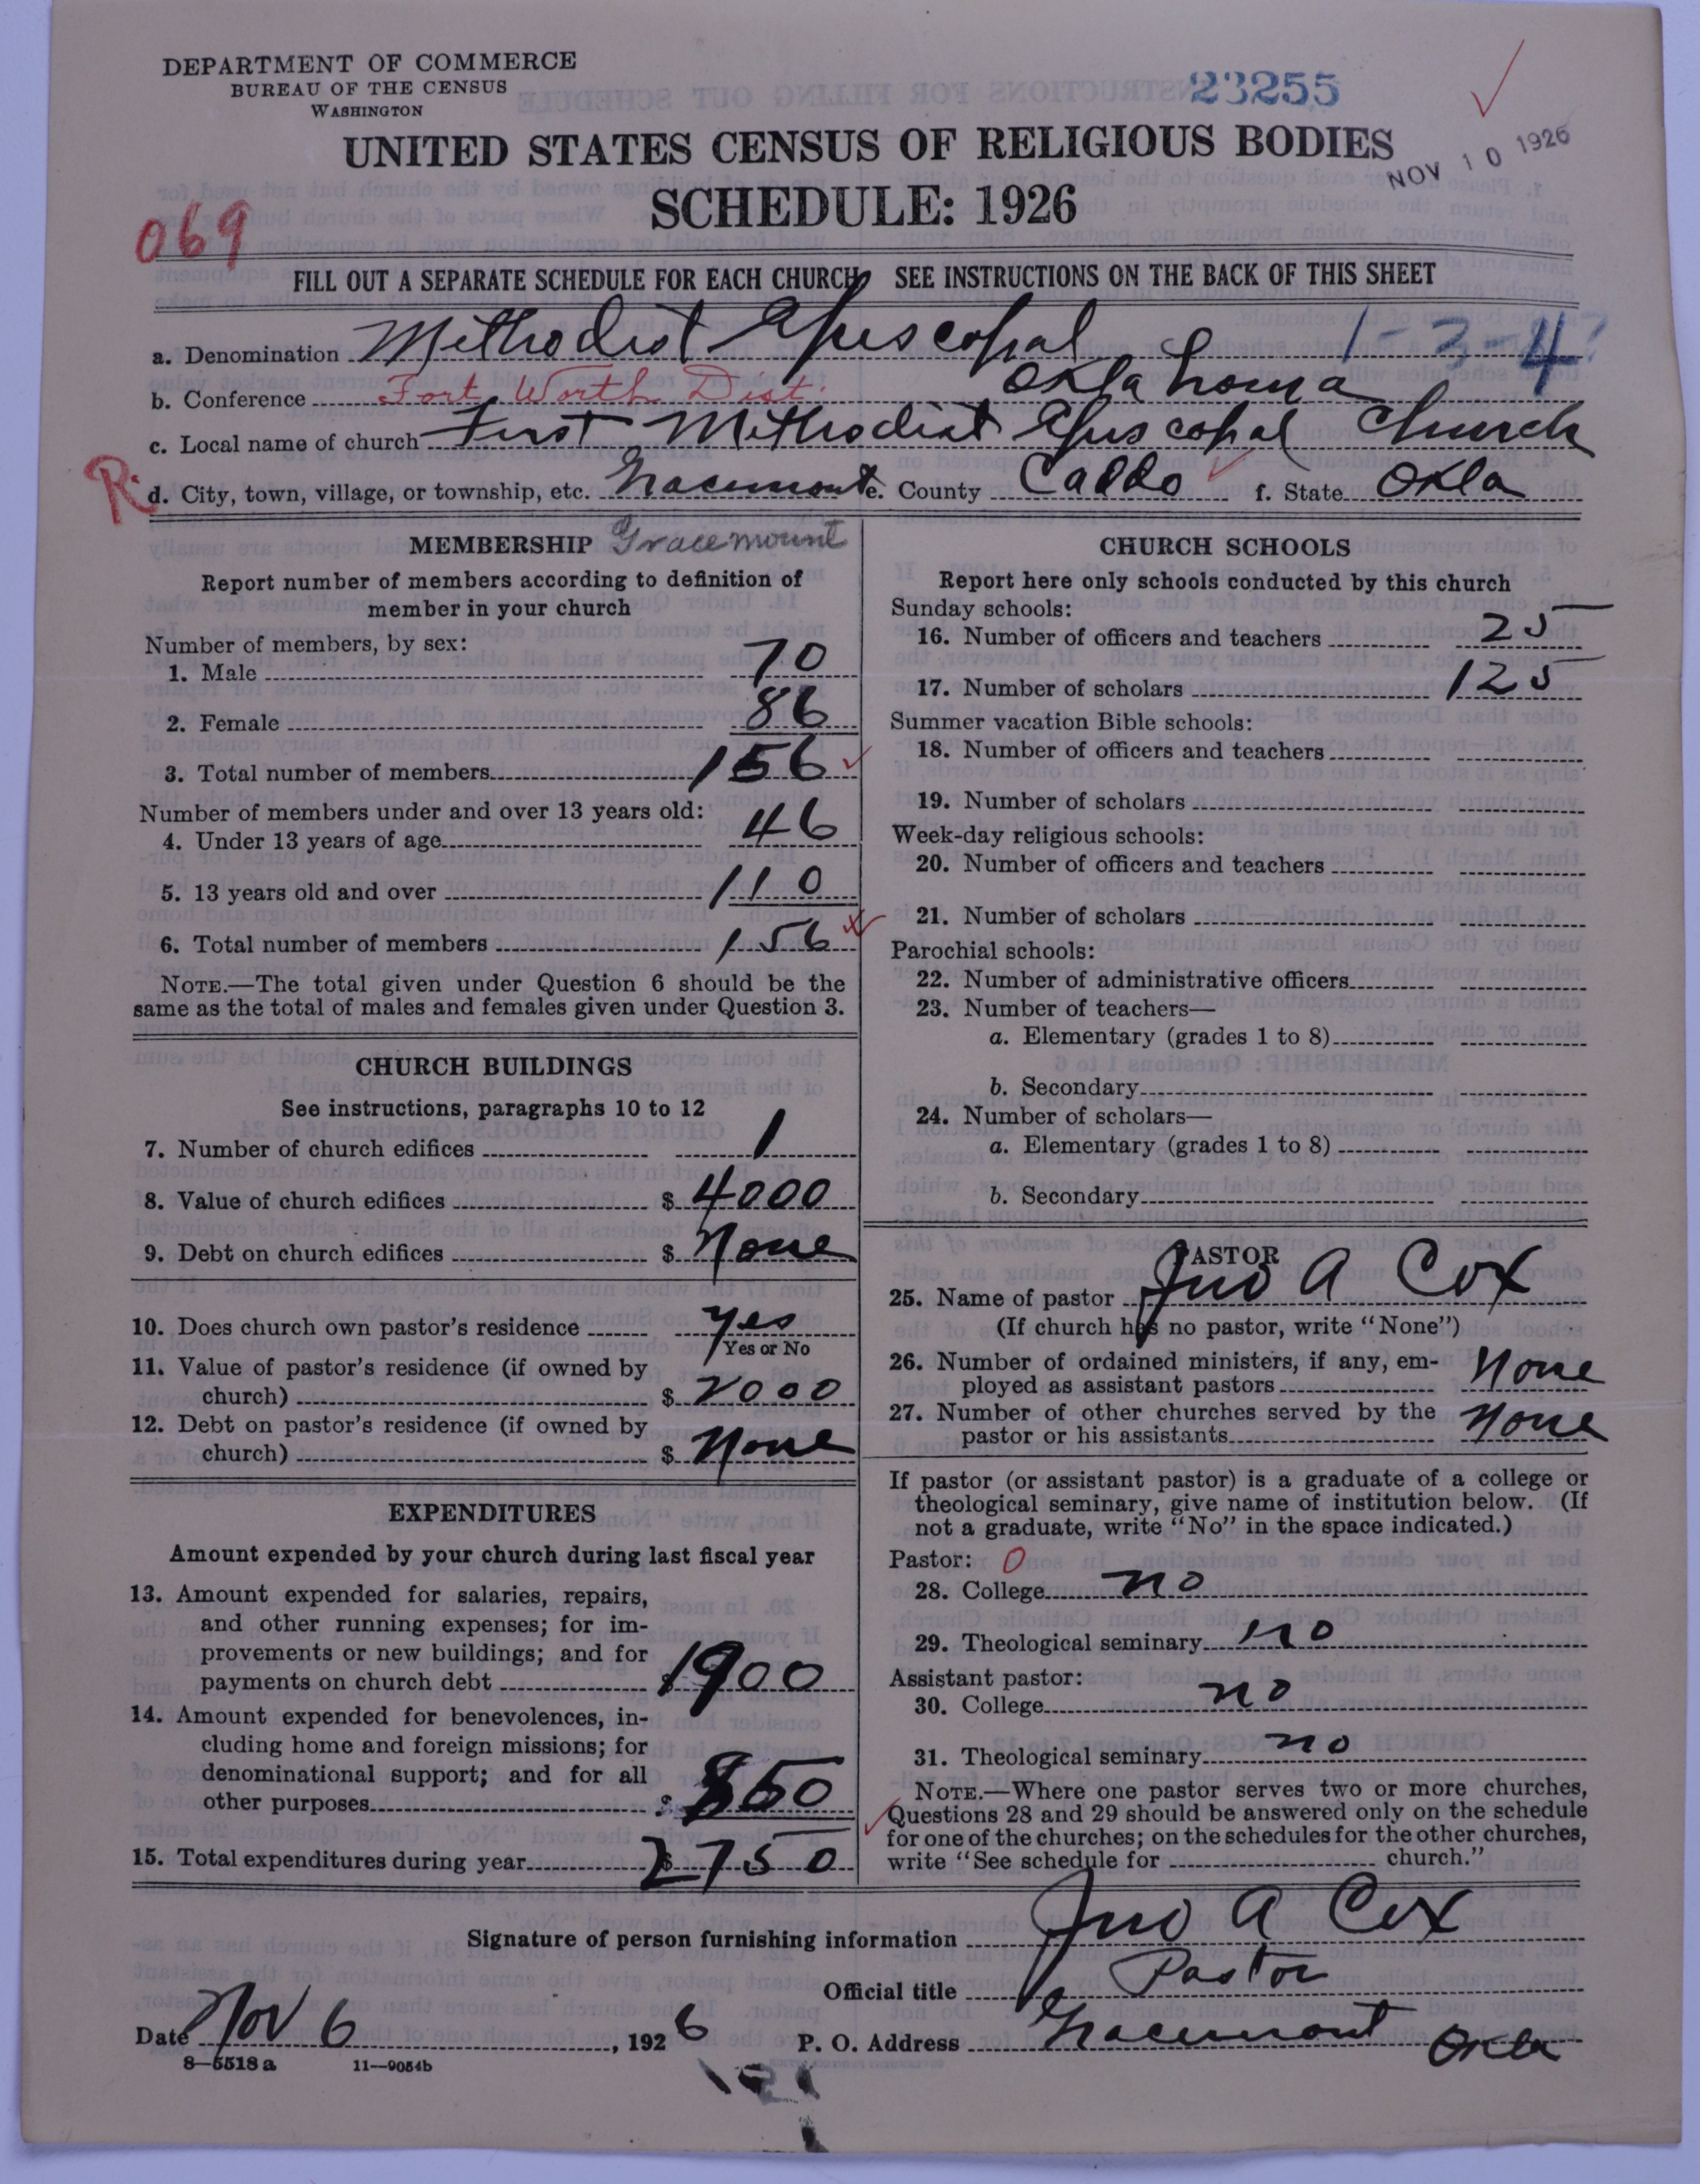 DEPARTMENT OF COMMERCE
BUREAU OF THE CENSUS
WASHINGTON
23255
UNITED STATES CENSUS OF RELIGIOUS BODIES
NOV 10 1926
SCHEDULE: 1926
069
FILL OUT A SEPARATE SCHEDULE FOR EACH CHURCH SEE INSTRUCTIONS ON THE BACK OF THIS SHEET
a. Denomination Methodist Episcopal 1-3-4
b. Conference Fort Worth Dist. Oklahoma
c. Local name of church First Methodist Episcopal Church
R. d. City, town, village, or township, etc. Gracemont e. County Caddo f. State Okla
MEMBERSHIP Gracemount
Report number of members according to definition of
member in your church
Number of members, by sex:
1. Male 70
2. Female 86
3. Total number of members 156
Number of members under and over 13 years old:
4. Under 13 years of age 46
5. 13 years old and over 110
6. Total number of members 156
NOTE.—The total given under Question 6 should be the
same as the total of males and females given under Question 3.
CHURCH BUILDINGS
See instructions, paragraphs 10 to 12
7. Number of church edifices 1
8. Value of church edifices $ 4000
9. Debt on church edifices $ None
10. Does church own pastor's residence yes
Yes or No
11. Value of pastor's residence (if owned by
church) $ 2000
12. Debt on pastor's residence (if owned by
church) $ None
EXPENDITURES
Amount expended by your church during last fiscal year
13. Amount expended for salaries, repairs,
and other running expenses; for im-
provements or new buildings; and for
payments on church debt $ 1900
14. Amount expended for benevolences, in-
cluding home and foreign missions; for
denominational support; and for all
other purposes $ 850
15. Total expenditures during year $ 2750
CHURCH SCHOOLS
Report here only schools conducted by this church
Sunday schools:
16. Number of officers and teachers 25
17. Number of scholars 125
Summer vacation Bible schools:
18. Number of officers and teachers
19. Number of scholars
Week-day religious schools:
20. Number of officers and teachers
21. Number of scholars
Parochial schools:
22. Number of administrative officers
23. Number of teachers—
a. Elementary (grades 1 to 8)
b. Secondary
24. Number of scholars—
a. Elementary (grades 1 to 8)
b. Secondary
PASTOR
25. Name of pastor Jno A Cox
(If church has no pastor, write "None")
26. Number of ordained ministers, if any, em-
ployed as assistant pastors None
27. Number of other churches served by the
pastor or his assistants None
If pastor (or assistant pastor) is a graduate of a college or
theological seminary, give name of institution below. (If
not a graduate, write "No" in the space indicated.)
Pastor: 0
28. College no
29. Theological seminary no
Assistant pastor:
30. College no
31. Theological seminary no
NOTE.—Where one pastor serves two or more churches,
Questions 28 and 29 should be answered only on the schedule
for one of the churches; on the schedules for the other churches,
write "See schedule for church."
Signature of person furnishing information Jno A Cox
Official title Pastor
Date Nov 6, 1926 P. O. Address Gracemont Okla
8—5518 a 11—9054b